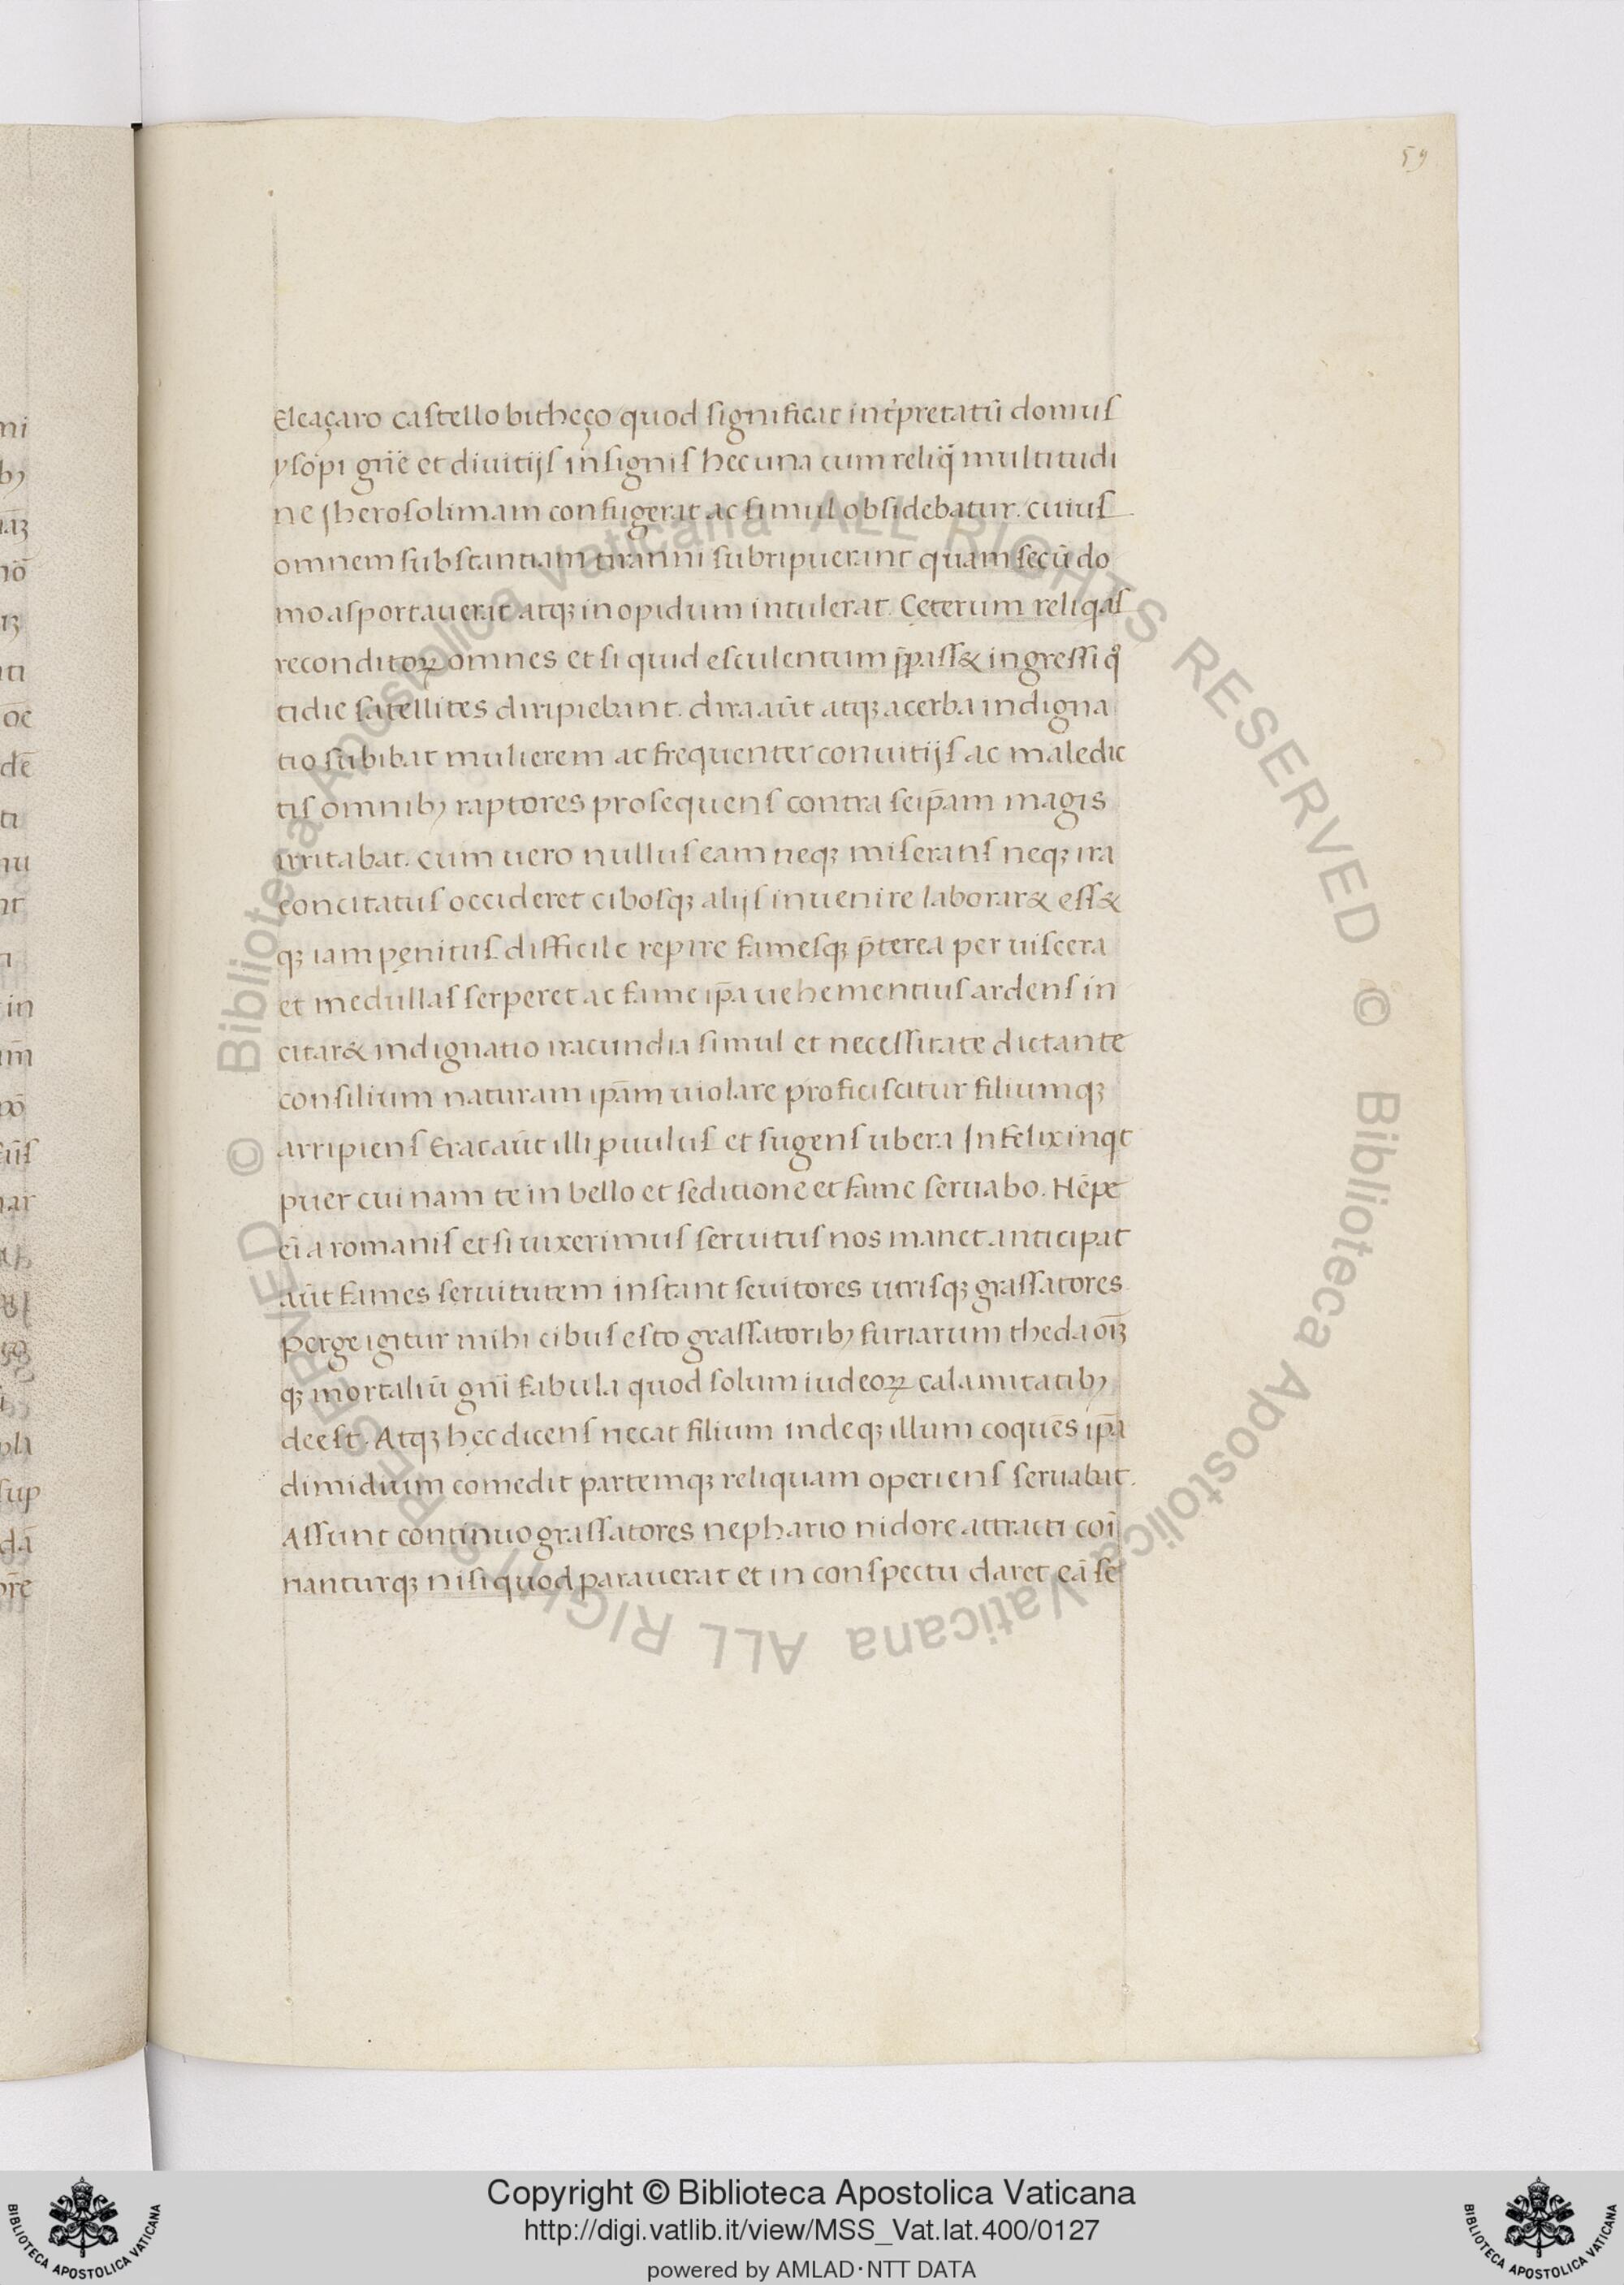 59
Eleaçaro castello bitheço quod significat int͛pretatū domus
ysopi gn̄e et diuitijs insignis hec una cum reliqͣ multitudi
ne Jherosolimam confugerat ac simul obsidebatur. cuius
omnem substantiam tiranni subripuerant quam secū do
mo asportauerat atqꝫ in opidum intulerat. Ceterum reliqͣs
reconditoꝝ omnes et si quid esculentum p̄pass& ingressi qͦ
tidie satellites diripiebant. dira aūt atqꝫ acerba indigna
tio subibat mulierem ac frequenter conuitijs ac maledic
tis omnibꝫ raptores prosequens contra seip̄am magis
irritabat. cum uero nullus eam neqꝫ miserans neqꝫ ira
concitatus occideret cibosqꝫ alijs inuenire laborar& ess&
qꝫ iam penitus difficile repire famesqꝫ p̄terea per uiscera
et medullas serperet ac fame ip̄a uehementius ardens in
citar& indignatio iracundia simul et necessitate dictante
consilium naturam ip̄am uiolare proficiscitur filiumqꝫ
arripiens Erat aūt illi puulus et sugens ubera Infelix inqt
puer cui nam te in bello et seditione et fame seruabo. Nēpe
eī a romanis et si uixerimus seruitus nos manet anticipat
aūt fames seruitutem instant seuitores utrisqꝫ grassatores
perge igitur mihi cibus esto grassatoribꝫ furiarum theda oīꝫ
qꝫ mortaliū gn̄i fabula quod solum iudeoꝝ calamitatibꝫ
deest. Atqꝫ hęc dicens necat filium indeqꝫ illum coquēs ip̄a
dimidium comedit partemqꝫ reliquam operiens seruabat.
Assunt continuo grassatores nephario nidore attracti coī
nanturqꝫ nisi quod parauerat et in conspectu daret eā se
Copyright © Biblioteca Apostolica Vaticana
http://digi.vatlib.it/view/MSS_Vat.lat.400/0127
powered by AMLAD·NTT DATA
BIBLIOTECA APOSTOLICA VATICANA
BIBLIOTECA APOSTOLICA VATICANA
© Biblioteca Apostolica Vaticana ALL RIGHTS RESERVED
© Biblioteca Apostolica Vaticana ALL RIGHTS RESERVED